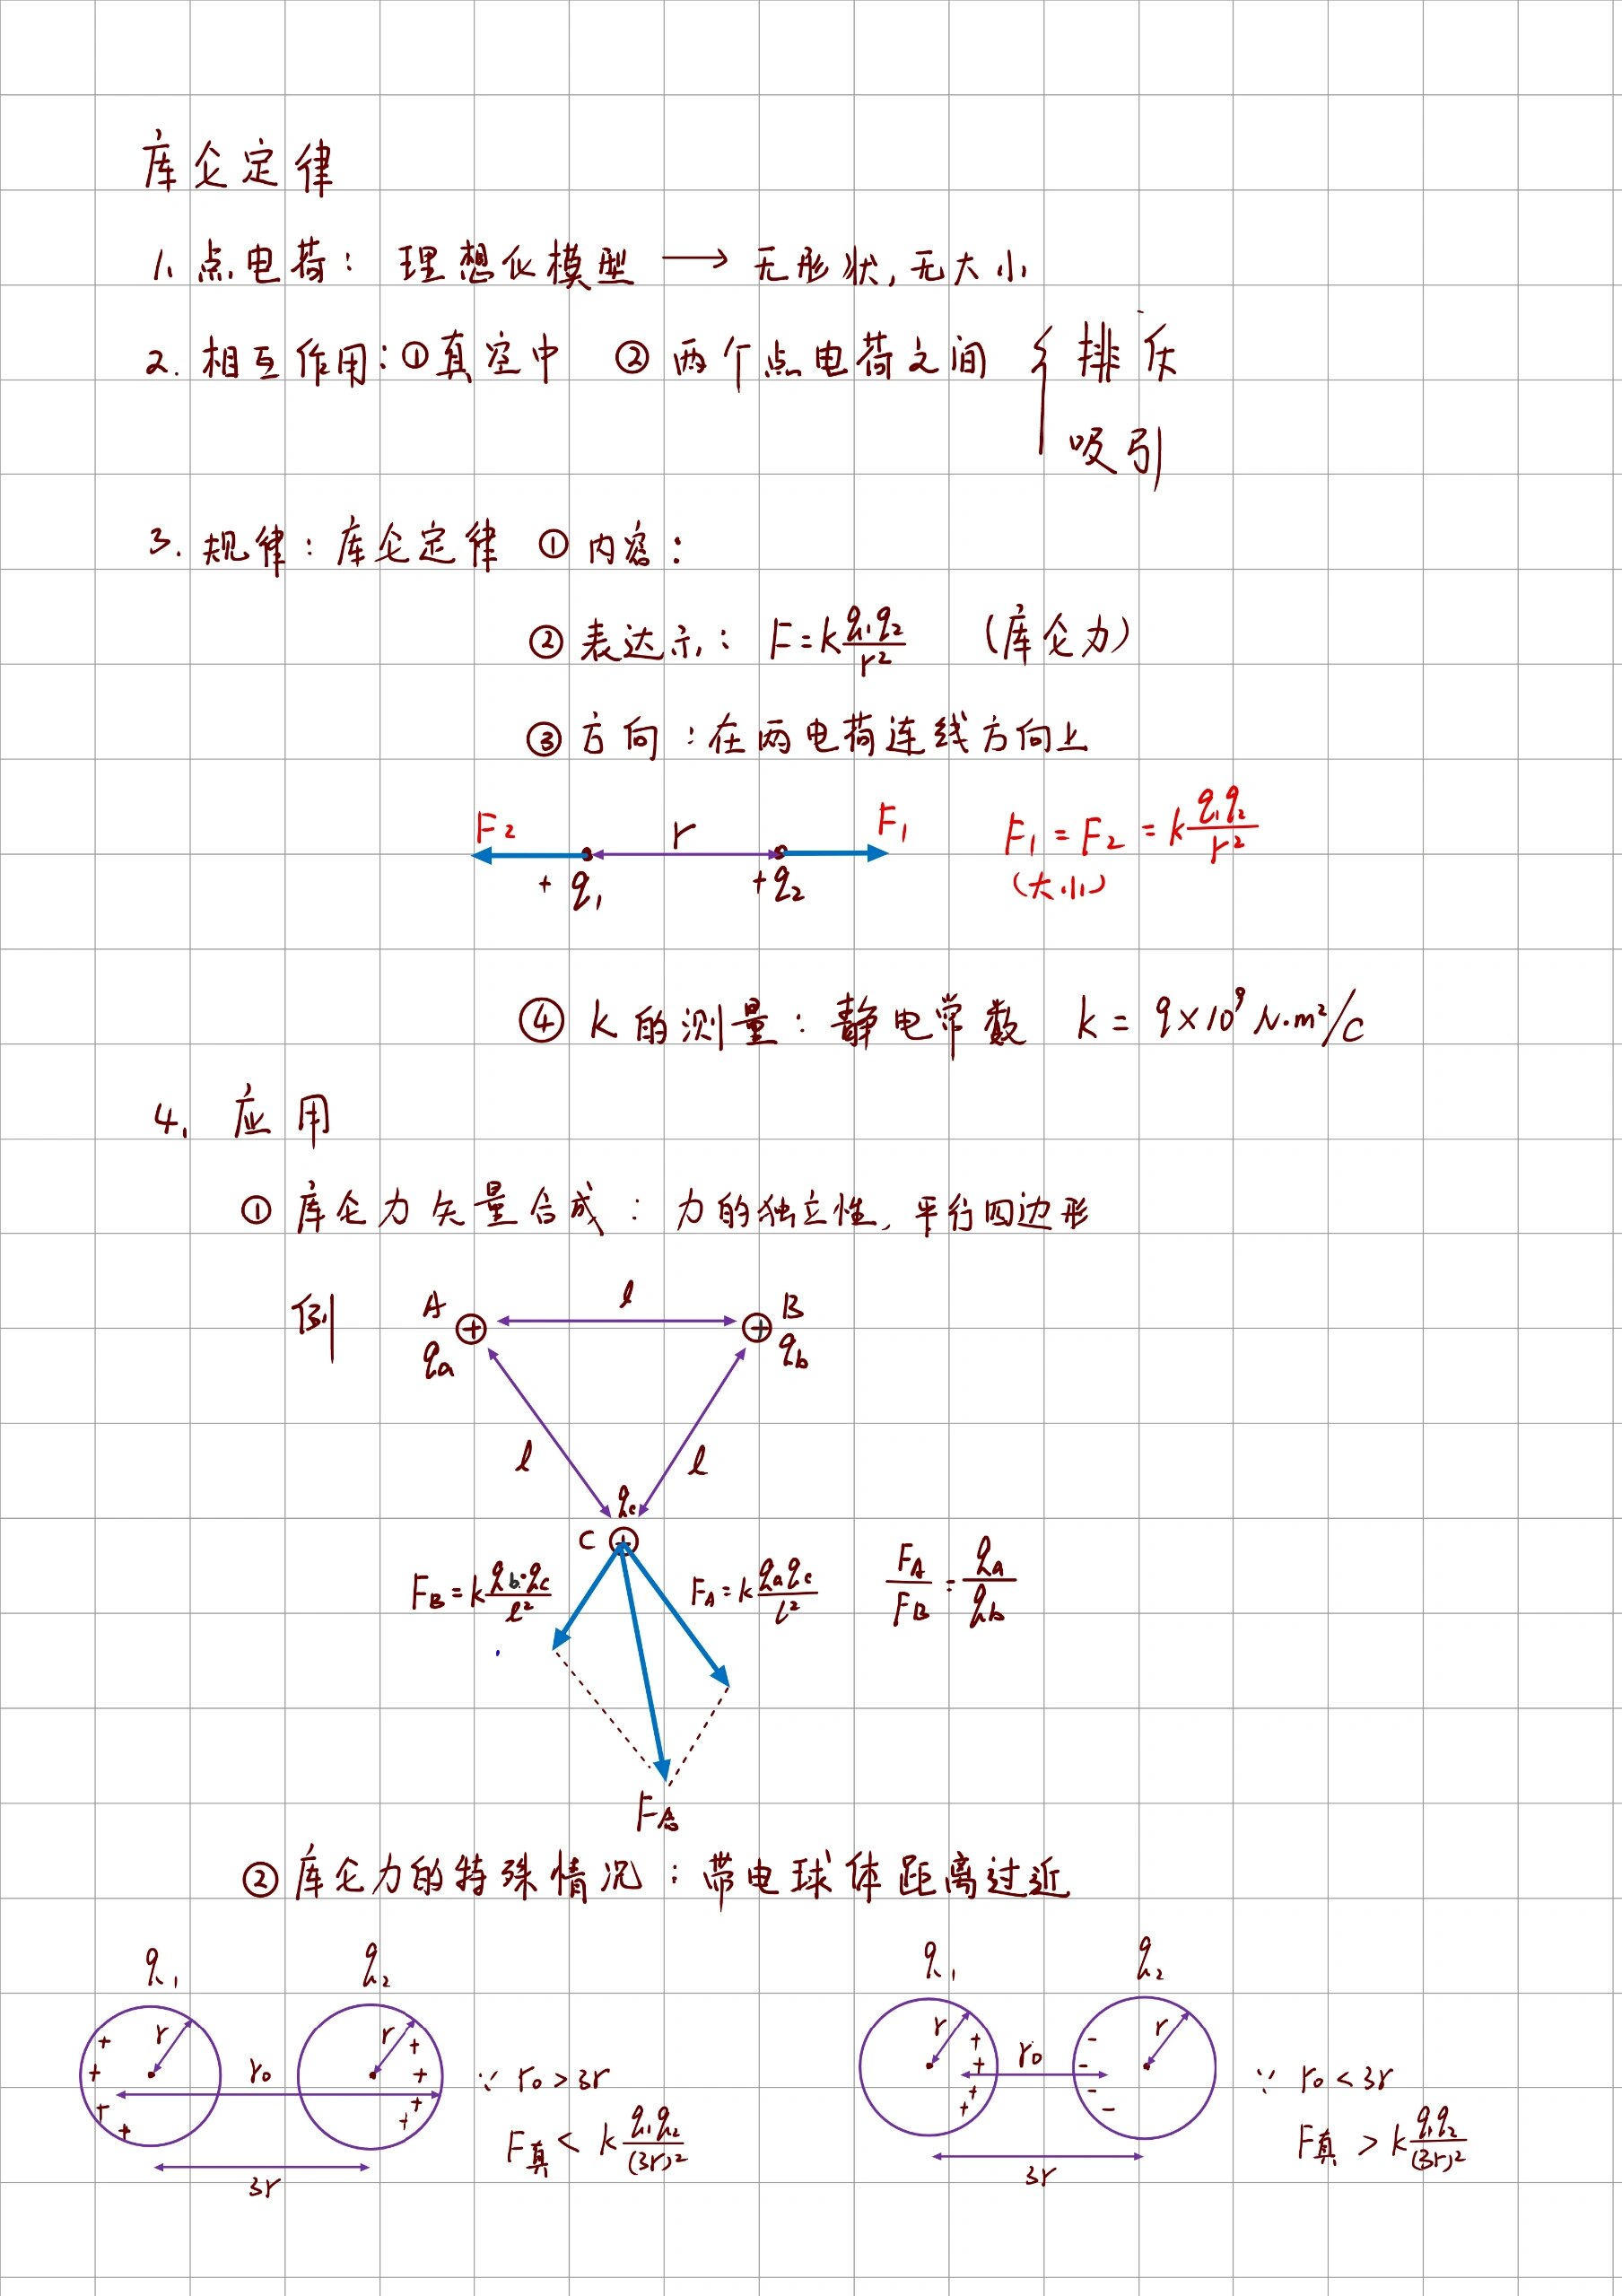 库仑定律
1. 点电荷： 理想化模型 ⟶ 无形状, 无大小
2. 相互作用：①真空中 ② 两个点电荷之间 { 排斥
吸引
3. 规律：库仑定律 ① 内容：
② 表达示： F=k\frac{q₁q₂}{r²} （库仑力）
③ 方向：在两电荷连线方向上
F₂ r F₁ F₁ = F₂ = k\frac{q₁q₂}{r²}
+ q₁ +q₂ （大小）
④ k 的测量：静电常数 k = 9×10⁹ N·m²/C
4. 应用
① 库仑力矢量合成：力的独立性, 平行四边形
例 A l B
+ +
qa qb
l l
qc
C +
F_B = k\frac{q_b·q_c}{l²} F_A = k\frac{q_a q_c}{l²} \frac{F_A}{F_B} = \frac{q_a}{q_b}
F总
② 库仑力的特殊情况：带电球体距离过近
q₁ q₂ q₁ q₂
r r r r
+ + + + + + + +
r₀ r₀
+ + + + - - - -
∵ r₀ > 3r ∵ r₀ < 3r
F真 < k\frac{q₁q₂}{(3r)²} F真 > k\frac{q₁q₂}{(3r)²}
3r 3r